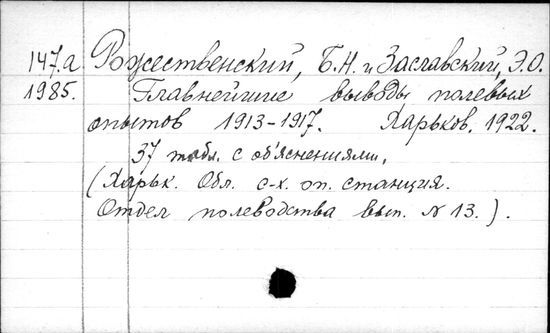 147.а Рожественский, Б.Н. и Заславский, Э.О.
1985. Главнейшие выводы полевых
опытов 1913-1917. Харьков, 1922.
37 табл. с объяснениями,
(Харьк. Обл. с-х. оп. станция.
Отдел полеводства вып. № 13.).